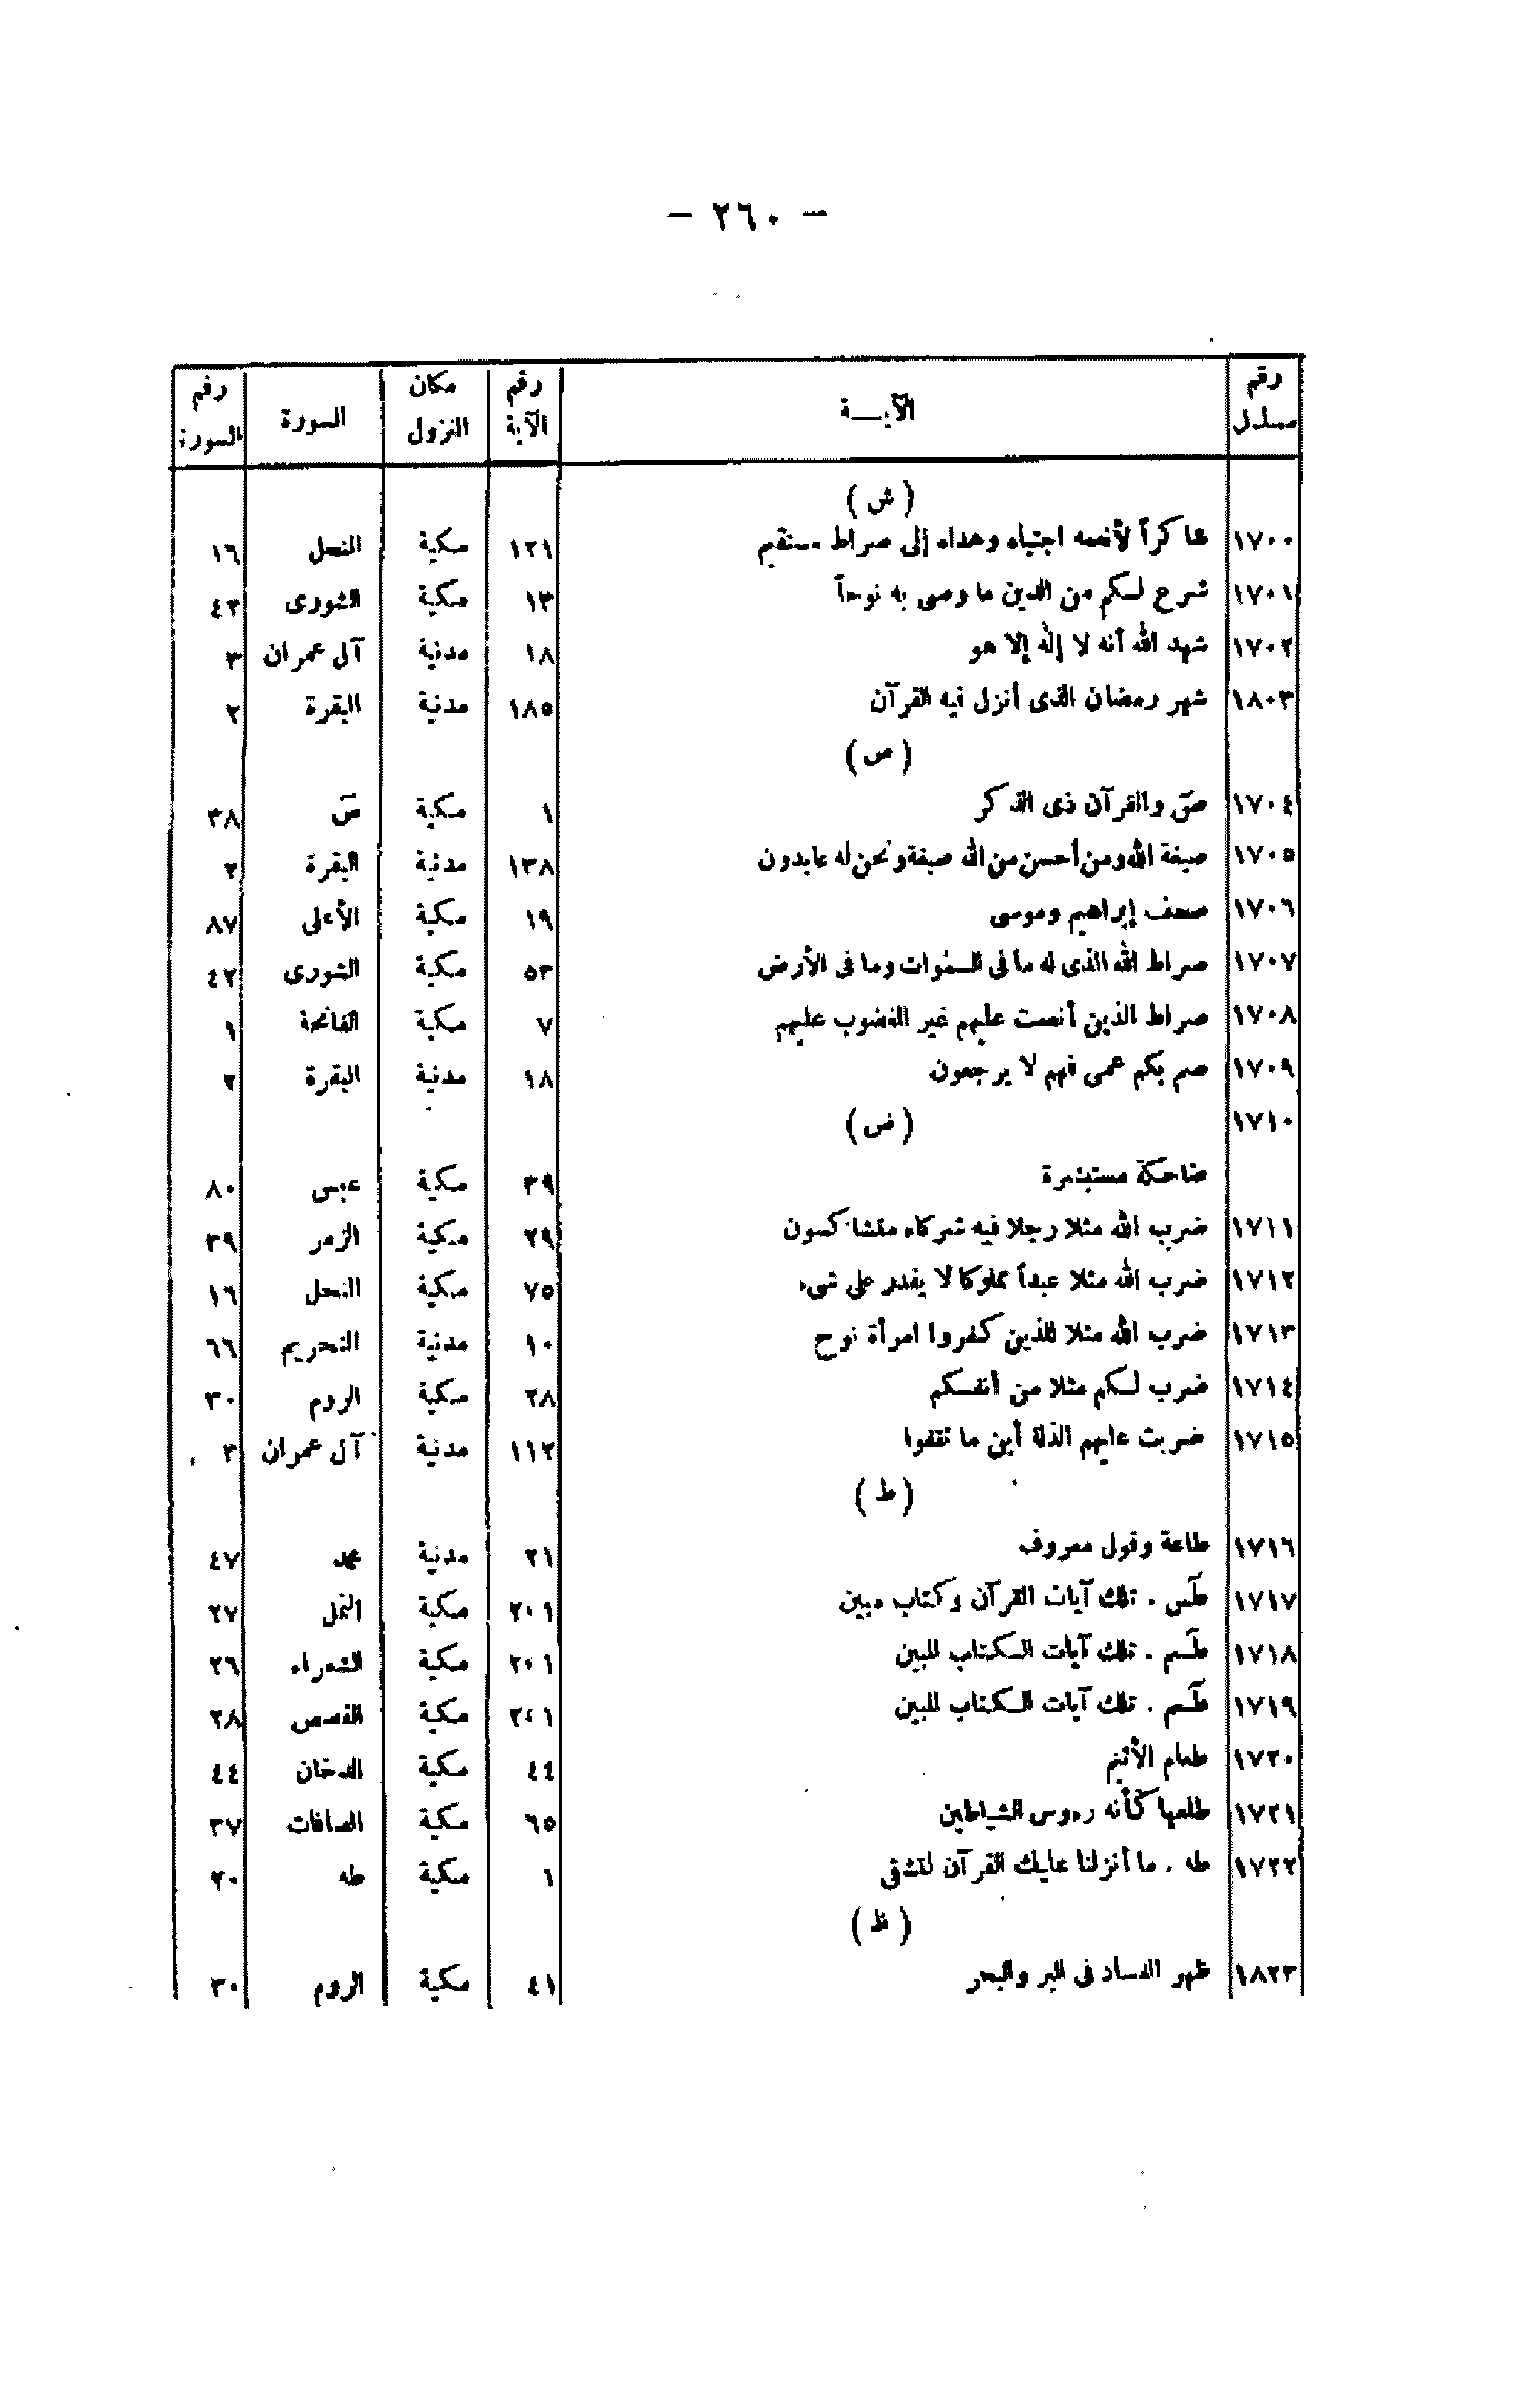 — ٢٦٠ —
رقم مسلسل | الآيــة | رقم الآية | مكان النزول | السورة | رقم السورة
(ش)
١٧٠٠ | شاكراً لأنعمه اجتباه وهداه إلى صراط مستقيم | ١٢١ | مكية | النحل | ١٦
١٧٠١ | شرع لكم من الدين ما وصى به نوحاً | ١٣ | مكية | الشورى | ٤٢
١٧٠٢ | شهد الله أنه لا إله إلا هو | ١٨ | مدنية | آل عمران | ٣
١٨٠٣ | شهر رمضان الذى أنزل فيه القرآن | ١٨٥ | مدنية | البقرة | ٢
(ص)
١٧٠٤ | صۤ والقرآن ذى الذكر | ١ | مكية | صۤ | ٣٨
١٧٠٥ | صبغة الله ومن أحسن من الله صبغة ونحن له عابدون | ١٣٨ | مدنية | البقرة | ٢
١٧٠٦ | صحف إبراهيم وموسى | ١٩ | مكية | الأعلى | ٨٧
١٧٠٧ | صراط الله الذى له ما فى السموات وما فى الأرض | ٥٣ | مكية | الشورى | ٤٢
١٧٠٨ | صراط الذين أنعمت عليهم غير المغضوب عليهم | ٧ | مكية | الفاتحة | ١
١٧٠٩ | صم بكم عمى فهم لا يرجعون | ١٨ | مدنية | البقرة | ٢
١٧١٠ | (ض)
ضاحكة مستبشرة | ٣٩ | مكية | عبس | ٨٠
١٧١١ | ضرب الله مثلا رجلا فيه شركاء متشاكسون | ٢٩ | مكية | الزمر | ٣٩
١٧١٢ | ضرب الله مثلا عبداً مملوكا لا يقدر على شىء | ٧٥ | مكية | النحل | ١٦
١٧١٣ | ضرب الله مثلا للذين كفروا امرأة نوح | ١٠ | مدنية | التحريم | ٦٦
١٧١٤ | ضرب لكم مثلا من أنفسكم | ٢٨ | مكية | الروم | ٣٠
١٧١٥ | ضربت عليهم الذلة أين ما ثقفوا | ١١٢ | مدنية | آل عمران | ٣
(ط)
١٧١٦ | طاعة وقول معروف | ٢١ | مدنية | محمد | ٤٧
١٧١٧ | طۤس . تلك آيات القرآن وكتاب مبين | ٢٠١ | مكية | النمل | ٢٧
١٧١٨ | طۤسم . تلك آيات الكتاب المبين | ٢،١ | مكية | الشعراء | ٢٦
١٧١٩ | طۤسم . تلك آيات الكتاب المبين | ٢،١ | مكية | القصص | ٢٨
١٧٢٠ | طعام الأثيم | ٤٤ | مكية | الدخان | ٤٤
١٧٢١ | طلعها كأنه رءوس الشياطين | ٦٥ | مكية | الصافات | ٣٧
١٧٢٢ | طه . ما أنزلنا عليك القرآن لتشقى | ١ | مكية | طه | ٢٠
(ظ)
١٨٢٣ | ظهر الفساد فى البر والبحر | ٤١ | مكية | الروم | ٣٠